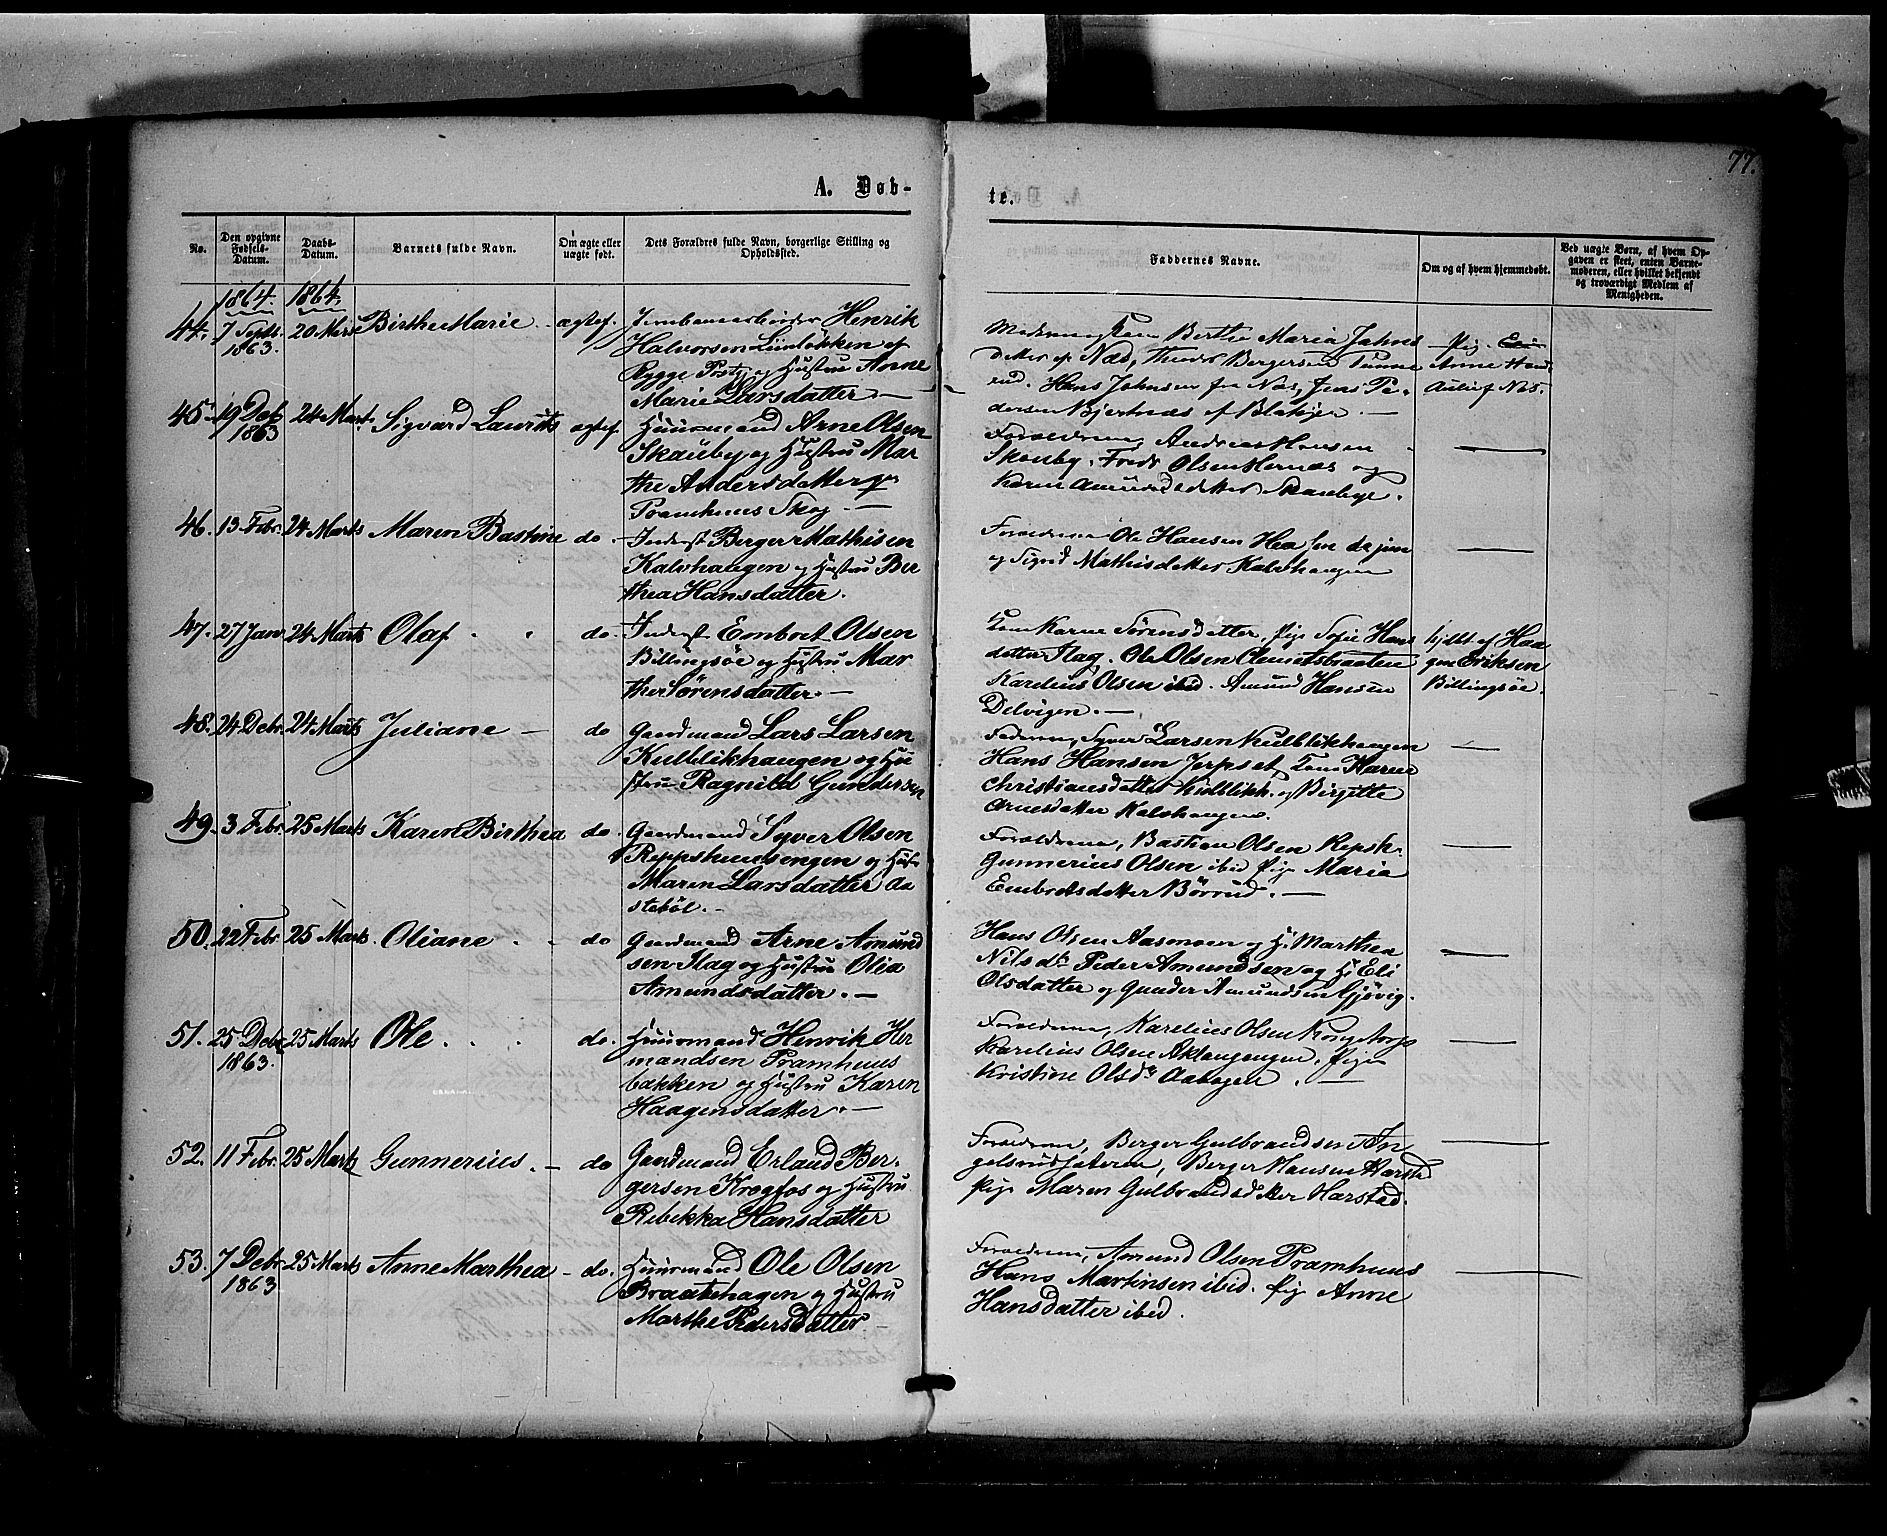 77.
A. Døb-
te.
No.
Den opgivne Fødsels-Datum.
Daabs-Datum.
Barnets fulde Navn.
Om ægte eller uægte født.
Dets Forældres fulde Navn, borgerlige Stilling og Opholdssted.
Faddernes Navne.
Om og af hvem hjemmedøbt.
Ved uægte Børn, af hvem Opgaven er skeet, enten Barnemoderen, eller hvilket bekjendt og troværdigt Medlem af Menigheden.
1864. 1864.
44. 7 Septb. 1863. 20 Marts Birthe Marie ægtef.
Jernbanearbeider Henrik
Halvorsen
Rygge Præstgj og Hustru Anne
Marie Larsdatter.
Berthe Maria Johns
datter af Næs, Berger
Hans Johnsen fra Næs, Jens Pe-
dersen af Blakjer.
Pige
Anne
af Nes.
45. 1863 24 Marts Sigvard Laurits ægtef.
Huusmand Arne Olsen
Skauby og Hustru Mar
the Andersdatter
Pramhuus Skog.
Forældrene, Andreas Hansen
Skauby, Fredr Olsen Hernæs og
Karen Amundsdatter Skaubye.
46. 13 Febr. 24 Marts Maren Bastine do.
Inderst Berger Mathisen
Kalvhaugen og Hustru Ber
thea Hansdatter.
Forældrene Ole Hansen
og Sigrid Mathisdatter Kalvhaugen
47. 27 Jan. 24 Marts Olaf do.
Inderst Embret Olsen
Billingsøe og Hustru Mar
the Sørensdatter.
Kone Karne Sørensdatter, Pige Sofie Hans
datter Flag. Ole Olsen Clemetsbraaten
Karelius Olsen ibid. Amund Hansen
Delvigen.
hjdbt af Haa
gen Eriksen
Billingsøe.
48. 24 Debr. 24 Marts Juliane do
Gaardmand Lars Larsen
Kulblikhaugen og Hu
stru Ragnild Gundersen
Faderen, Syver Larsen Kulblikhaugen
Hans Hansen Jerpset, Kone Karne
Christiansdatter Kulblikh. og Birgitte
Arnesdatter Kalvhaugen.
49. 3 Febr. 25 Marts Karen Birthea do.
Gaardmand Syver Olsen
Reppshuusengen og Hust
Maren Larsdatter Aa
stebøl.
Forældrene, Bastian Olsen Repsh.
Gunnerius Olsen ibid Pige Maria
Embretsdatter Børrud.
50. 22 Febr. 25 Marts. Oliane do
Gaardmand Arne Amund
sen Flag og Hustru Olia
Amundsdatter.
Hans Olsen Aasmoen og H. Marthea
Nilsdtr Peder Amundsen og H. Eli
Olsdatter og Gunder Amundsen Gjøvig.
51. 25 Debr 1863. 25 Marts Ole do.
Huusmand Henrik Her
mandsen Pramhuus
bakken og Hustru Karen
Haagensdatter.
Forældrene, Karelius Olsen Kongstorp
Karelius Olsen Aklangengen. Pige
Kristine Olsdr Aabogen.
52. 11 Febr. 25 Marts Gunnerius do
Gaardmand Erland Ber-
gersen Krogfos og Hustru
Rebekka Hansdatter
Forældrene, Berger Gulbrandsen
Berger Hansen Harstad
Pige Maren Gulbrandsdatter Harstad.
53. 7 Debr. 1863 25 Marts Anne Marthea do.
Huusmand Ole Olsen
Braatehagen og Hustru
Marthe Pedersdatter
Forældrene, Amund Olsen Pramhuus
Hans Martinsen ibid. Pige Anne
Hansdatter ibid.